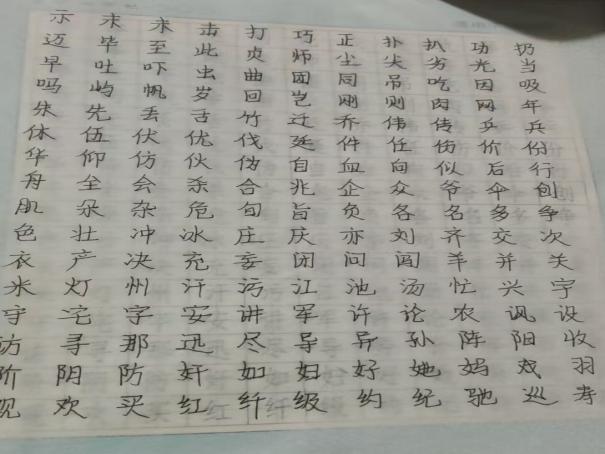 示 末 未 击 打 巧 正 扑 扒 功 扔
迈 毕 至 此 贞 师 尘 尖 劣 光 当
早 吐 吓 虫 曲 团 同 吊 吃 因 吸
吗 屿 帆 岁 回 岂 刚 则 肉 网 年
朱 先 丢 舌 竹 迁 乔 伟 传 乒 兵
休 伍 伏 优 伐 延 件 任 伤 价 份
华 仰 仿 伙 伪 自 血 向 似 后 行
舟 全 会 杀 合 兆 企 众 爷 伞 创
肌 朵 杂 危 旬 旨 负 各 名 多 争
色 壮 冲 冰 庄 庆 亦 刘 齐 交 次
衣 产 决 充 妄 闭 问 闯 羊 并 关
米 灯 州 汗 污 江 池 汤 忙 兴 宇
守 宅 字 安 讲 军 许 论 农 讽 设
访 寻 那 迅 尽 导 异 孙 阵 阳 收
阶 阴 防 奸 如 妇 好 她 妈 戏 羽
观 欢 买 红 纤 级 约 纪 驰 巡 寿